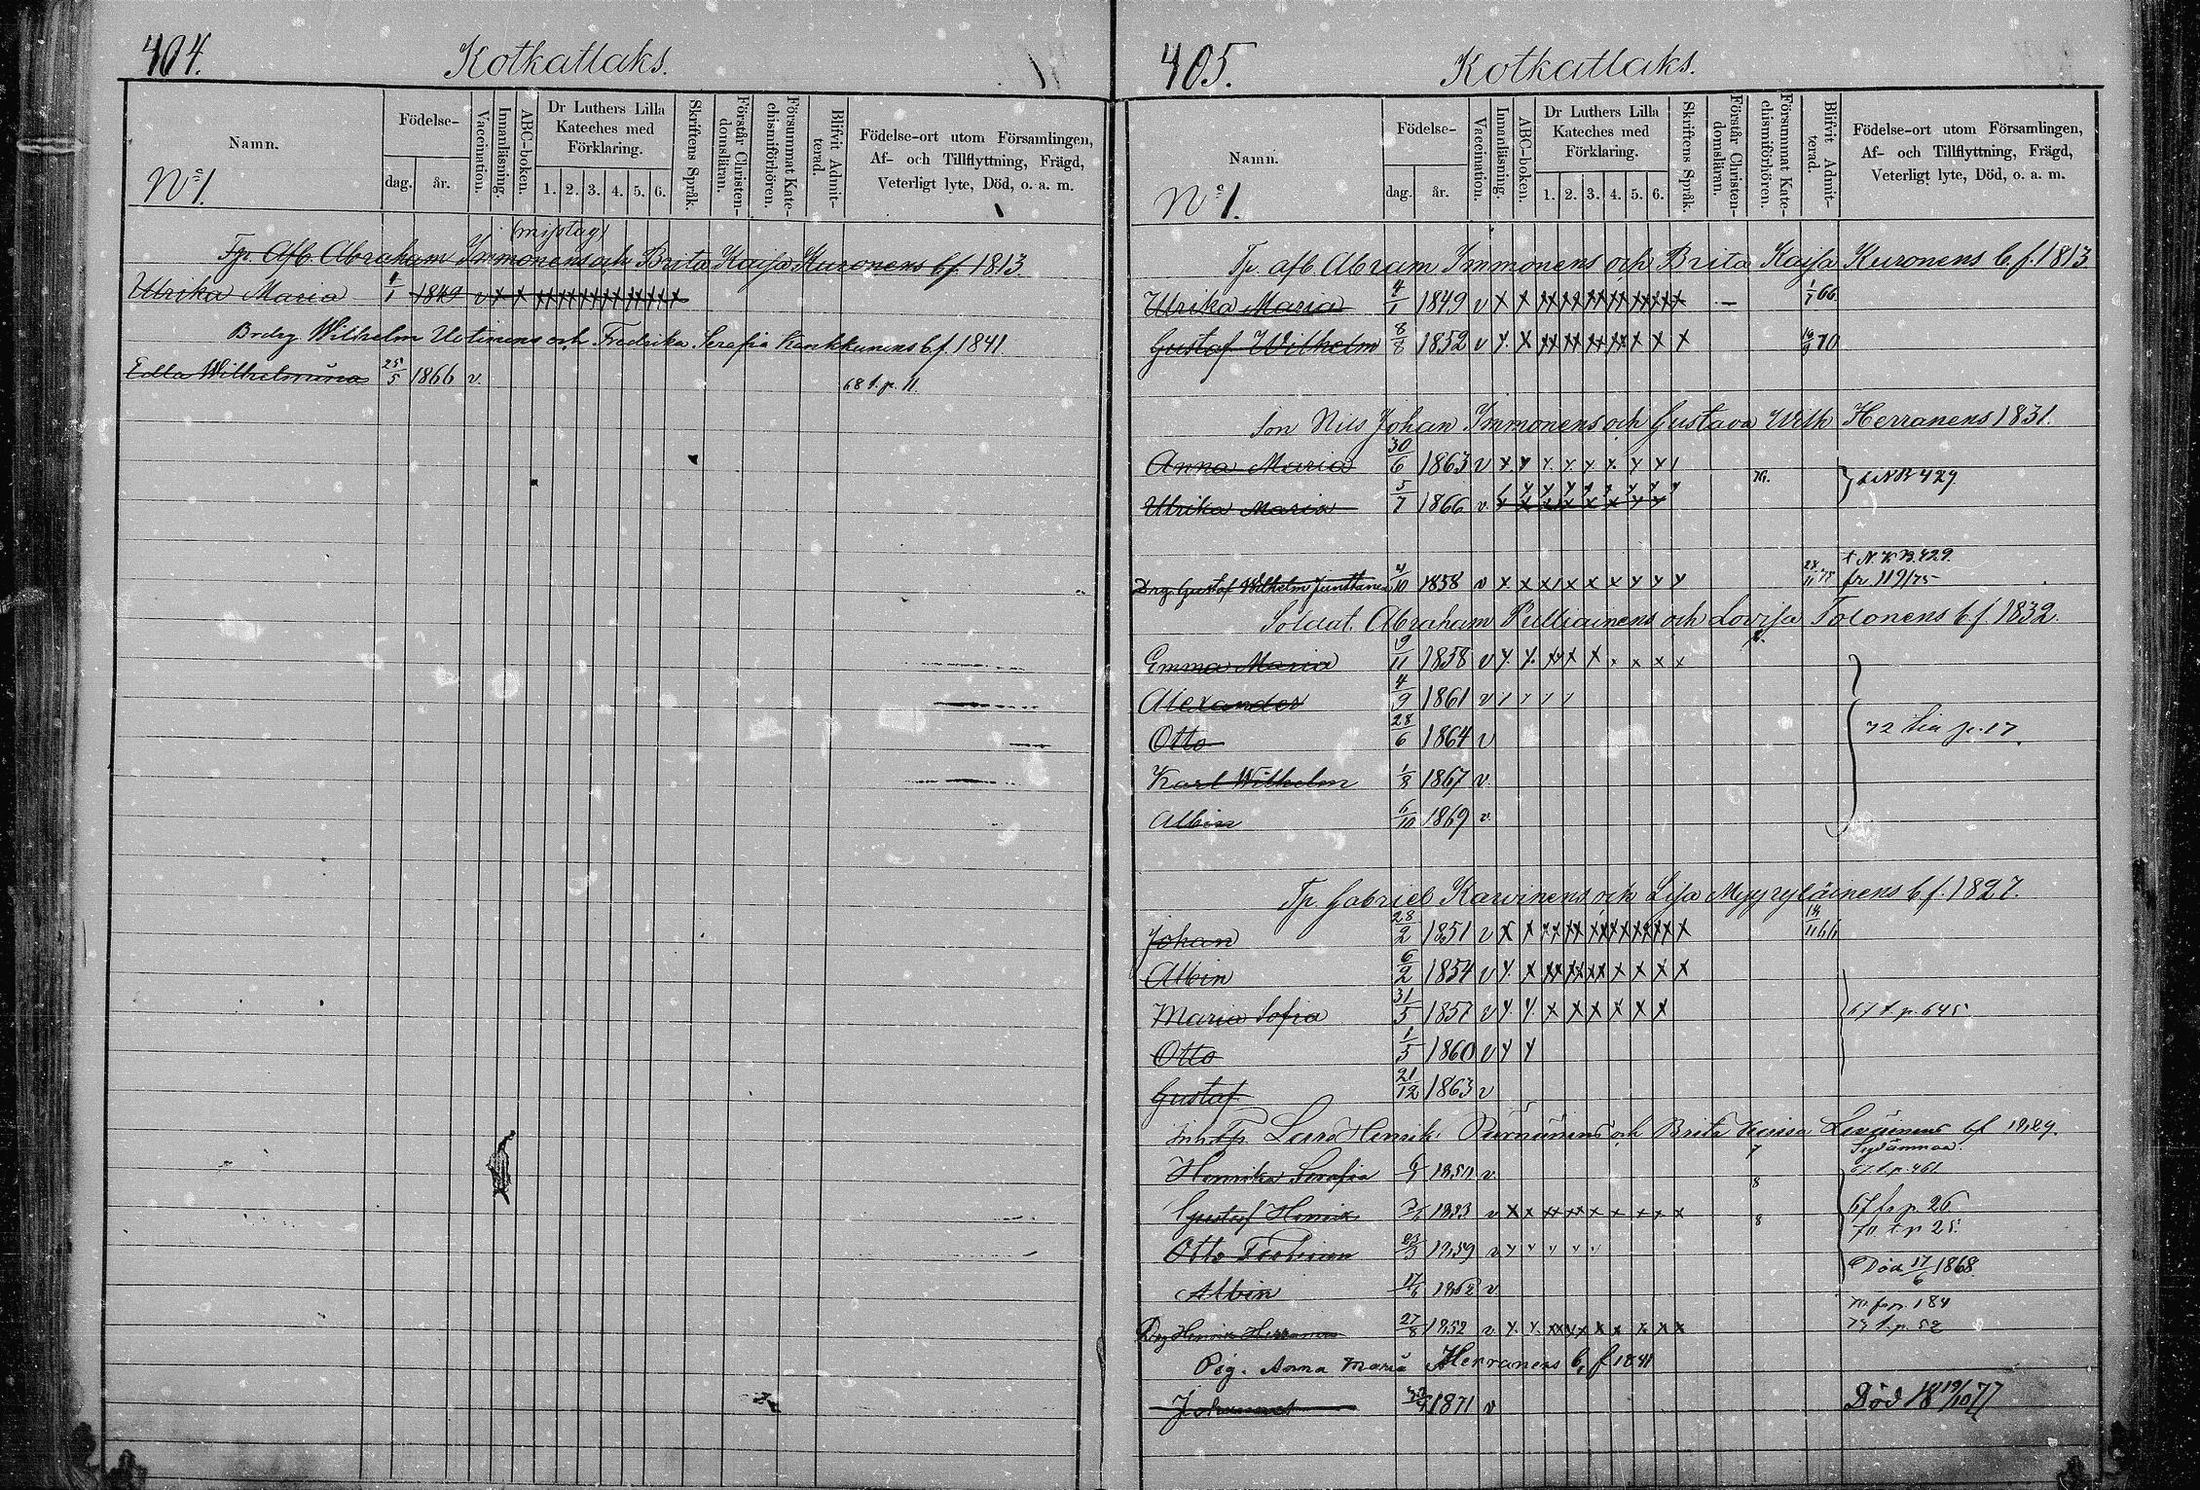 404.
Kotkatlaks.
Namn.
Födelse-
dag.
år.
Vaccination.
Innanläsning.
ABC-boken.
Dr Luthers Lilla
Kateches med
Förklaring.
1. 2. 3. 4. 5. 6.
Skriftens Språk.
Förstår Christen-
domsläran.
Försummat Kate-
chismiförhören.
Blifvit Admit-
terad.
Födelse-ort utom Församlingen,
Af- och Tillflyttning, Frägd,
Veterligt lyte, Död, o. a. m.
No 1.
(misstag)
Tp. Afb. Abraham Immonens och Brita Kaisa Kuronens bf. 1813.
Ulrika Maria 1849 v
Brdrg Wilhelm Uotinens och Fredrika Serafia Kankkunens bf. 1841
Edla Wilhelmiina 25/5 1866 v. 68 t. p. 11.
405.
Kotkatlaks.
Namn.
Födelse-
dag.
år.
Vaccination.
Innanläsning.
ABC-boken.
Dr Luthers Lilla
Kateches med
Förklaring.
1. 2. 3. 4. 5. 6.
Skriftens Språk.
Förstår Christen-
domsläran.
Försummat Kate-
chismiförhören.
Blifvit Admit-
terad.
Födelse-ort utom Församlingen,
Af- och Tillflyttning, Frägd,
Veterligt lyte, Död, o. a. m.
No 1.
Tp. afb. Abram Immonens och Brita Kaisa Kuronens b. f. 1813
Ulrika Maria 4/1 1849 v 1/7 66
Gustaf Wilhelm 8/8 1852 v 70
Son Nils Johan Immonens och Gustava Wilh Herranens 1831.
Anna Maria 30/6 1863 v
Ulrika Maria 5/7 1866 v t. NB 429
t N. K. B. 429.
Drg. Gustaf Wilhelm Junttanen 4/10 1858 v fr 119/75
Soldat. Abraham Pulliainens och Lovisa Tolonens b f. 1832.
Emma Maria 9/11 1858 v
Alexander 4/9 1861 v
Otto 28/6 1864 v 72 p. 17.
Karl Wilhelm 1/8 1867 v.
Albin 6/10 1869 v
Tp. Gabriel Karvinens och Lisa Myyryläinens b f. 1827.
Johan 28/2 1851 v 14/11 66
Albin 6/2 1854 v
Maria Sofia 31/5 1857 v 67 t. p. 645
Otto 1/5 1860 v
Gustaf 21/12 1863 v
Inh. Tp. Lars Henrik och Brita Kaisa bf 1829.
Henrika Serafia v 7
Gustaf Henrik 1853 v 8 67 fr p. 26
8 70 t p 25
Otto 23/3 1859 v
Albin v Död 17/6 1868.
Drg Henrik Herranen 27/8 1852 v. p. 184
73 t. p. 52
Pig. Anna Maria Herranens b, f 1841
Johannes 1871 v Död 18 19/10 77